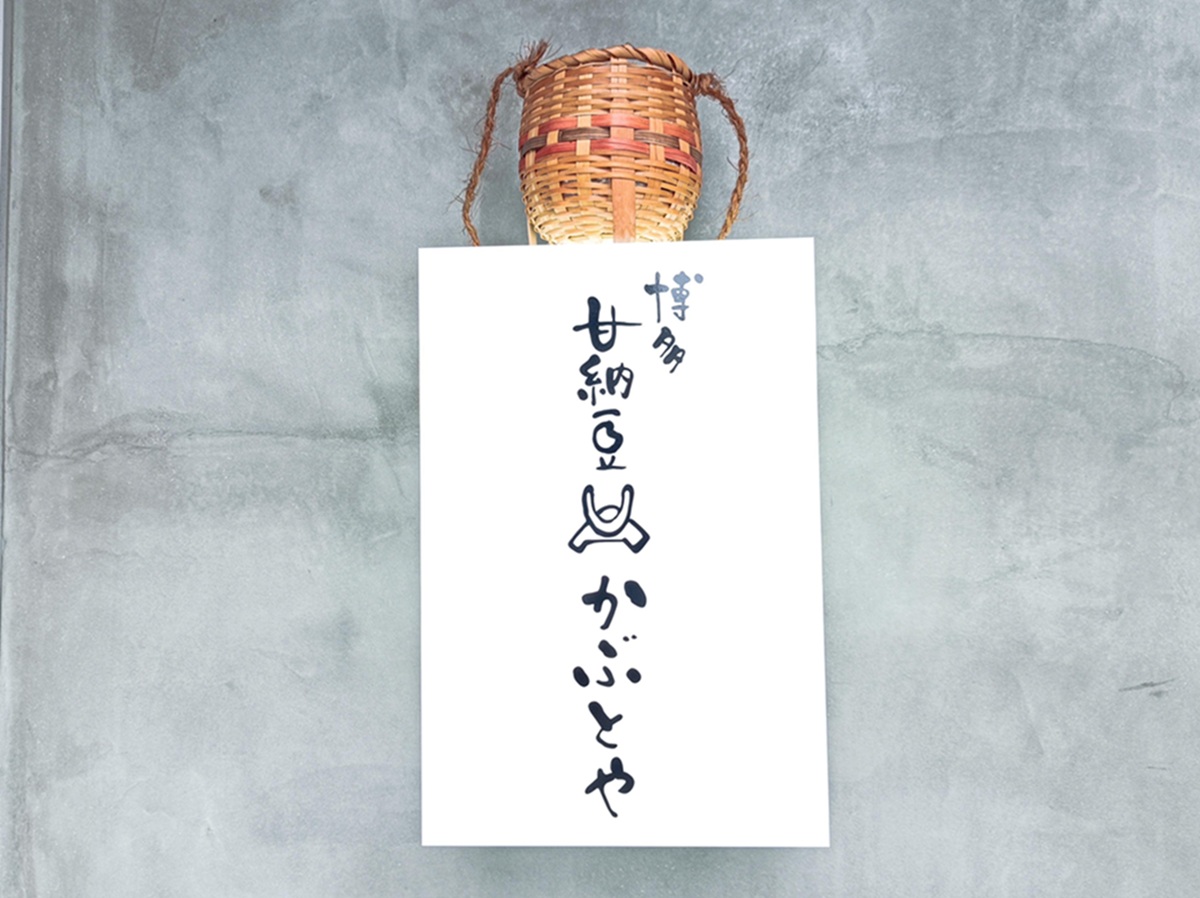 博多
甘納豆
かぶとや